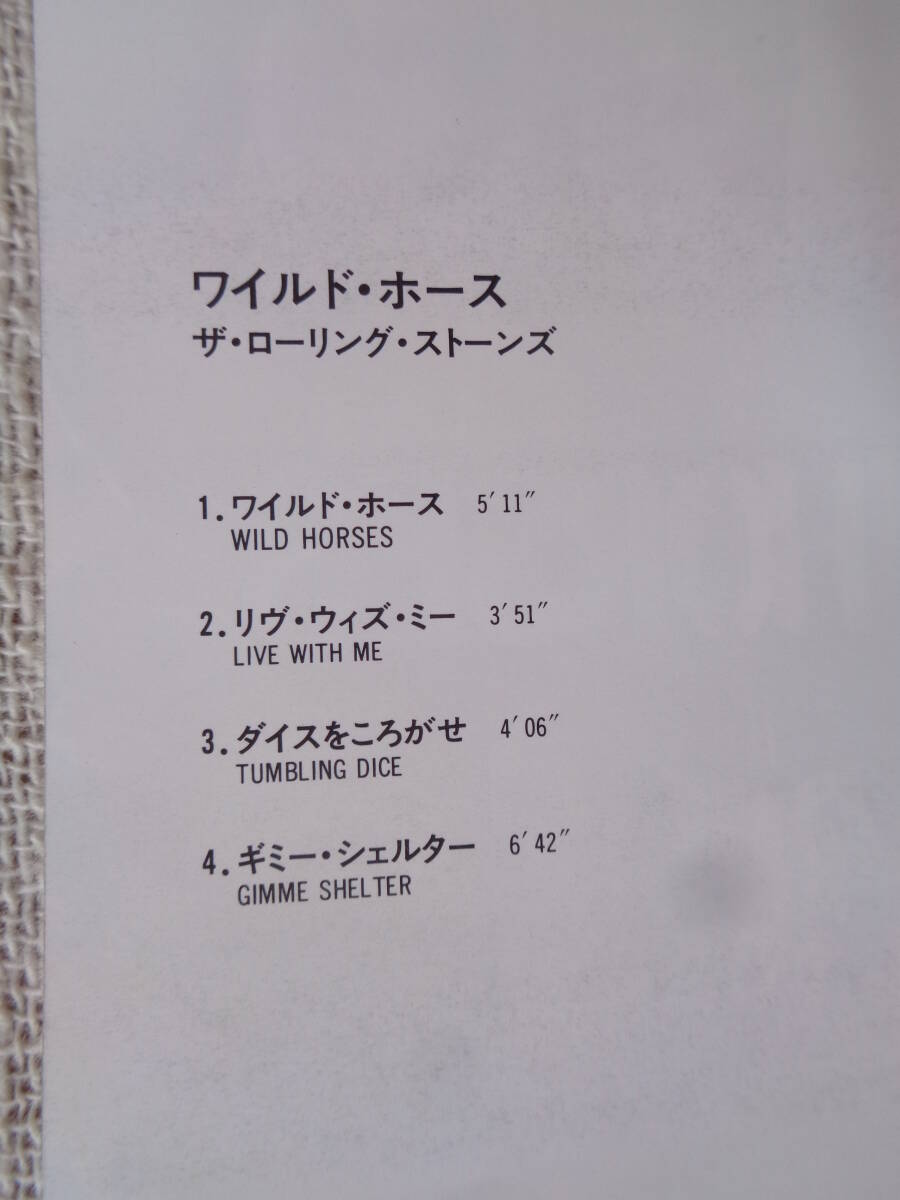 ワイルド・ホース
ザ・ローリング・ストーンズ
1. ワイルド・ホース 5′11″
WILD HORSES
2. リヴ・ウィズ・ミー 3′51″
LIVE WITH ME
3. ダイスをころがせ 4′06″
TUMBLING DICE
4. ギミー・シェルター 6′42″
GIMME SHELTER